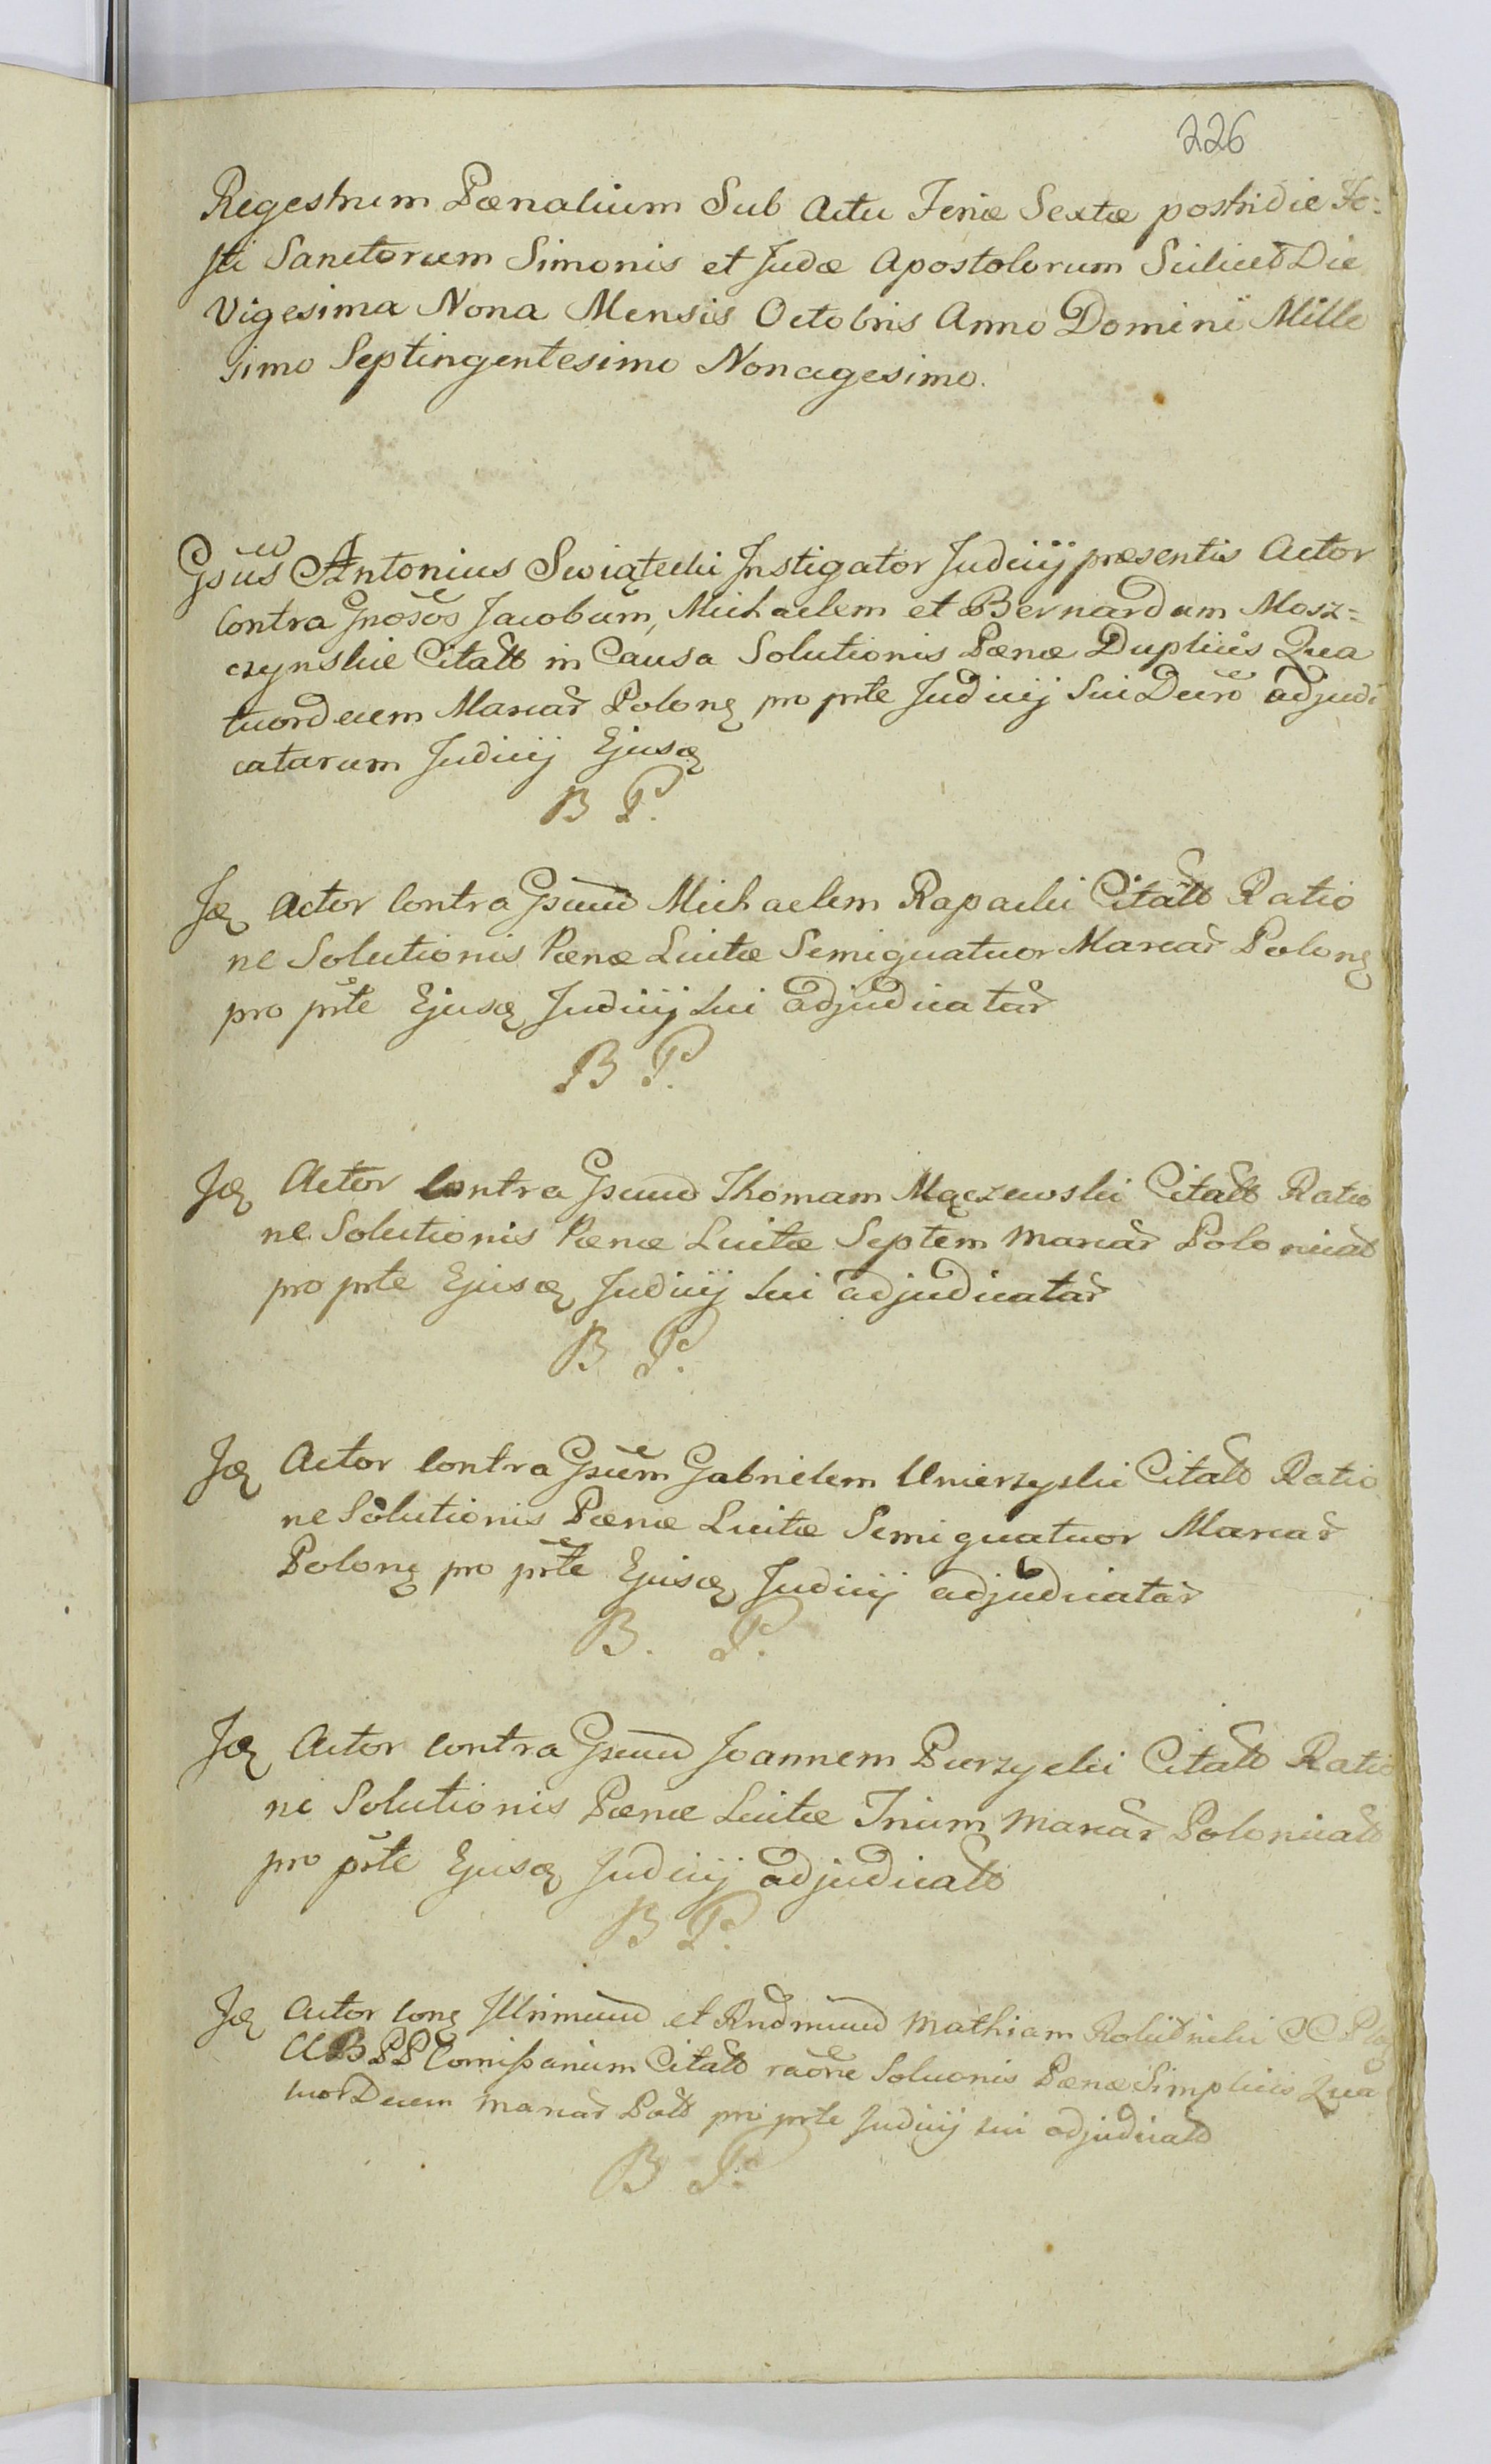 226
Regestrum Pœnalium Sub Actu Feriæ Sextæ postridie Fe=
sti Sanctorum Simonis et Judæ Apostolorum Scilicet Die
Vigesima Nona Mensis Octobris Anno Domini Mille
simo Septingentesimo Nonagesimo.
Gsus Antonius Swiątecki Instigator Judicij præsentis Actor
Contra Gnosos Jacobum, Michaelem et Bernardum Mosz=
czynskie Citatt in Causa Solutionis Pœnæ Duplicis Qua
tuordecem Marcar Polonę pro prte Judicij Sui Decro adjudi
catarum Judicij Ejusq
B P.
Jq Actor Contra Gsum Michaelem Rapacki Citatt Ratio
ne Solutionis Pœnæ Luitæ Semiquatuor Marcar Polonę
pro prte Ejusq Judicij Sui adjudicatar
B P.
Jq Actor Contra Gsum Thomam Mączewski Citatt Ratio
ne Solutionis Pœnæ Luitæ Septem Marcar Polonicat
pro prte Ejusq Judicij Sui adjudicatar
B P.
Jq Actor Contra Gsum Gabrielem Unierzyski Citatt Ratio
ne Solutionis Pœnæ Luitæ Semiquatuor Marcar
Polonę pro prte Ejusq Judicij adjudicatar
B. P.
Jq Actor Contra Gsum Joannem Purzycki Citatt Ratio
ne Solutionis Pœnæ Luitæ Trium Marcar Polonicatt
pro prte Ejusq Judicij adjudicatt
B P.
Jq Actor Conę Illrimum et Rndmum Mathiam
Comissarium Citatt raone Soluonis Pœnæ Simplicis Qua
tuorDecem Marcar Pott pro prte Judicij Sui adjudicatt
B P.